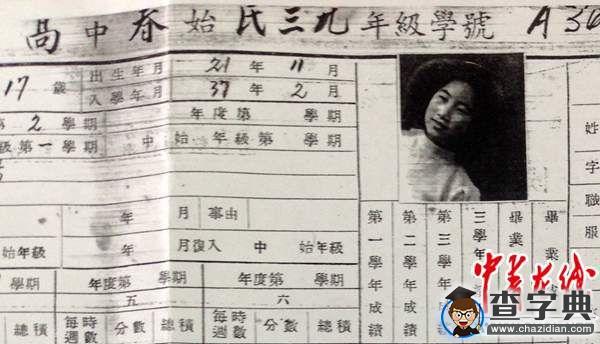 高中春始民三九年級學號 A30
17 歲 出生年月 21 年 11 月
入學年月 37 年 2 月
第 2 學期 年度第 學期
級第一學期 中 始 年級第 學期
年 月 事由
始年級 年 月復入 中 始年級
學期 年度第 學期 年度第 學期
五 六
總積 每時週數 分數 總積 每時週數 分數 總積
第一學年成績
第二學年成績
第三學年成績
三學年
畢業
畢業
姓
字
職
服
中華大仙
查字典
www.chazidian.com